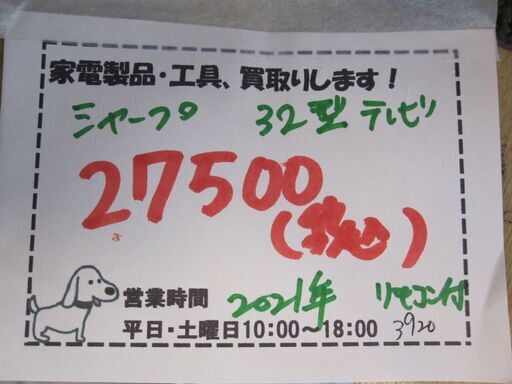 家電製品・工具、買取りします！
シャープ 32型 テレビ
27500
(税込)
2021年 リモコン付
営業時間
平日・土曜日10:00～18:00 3920